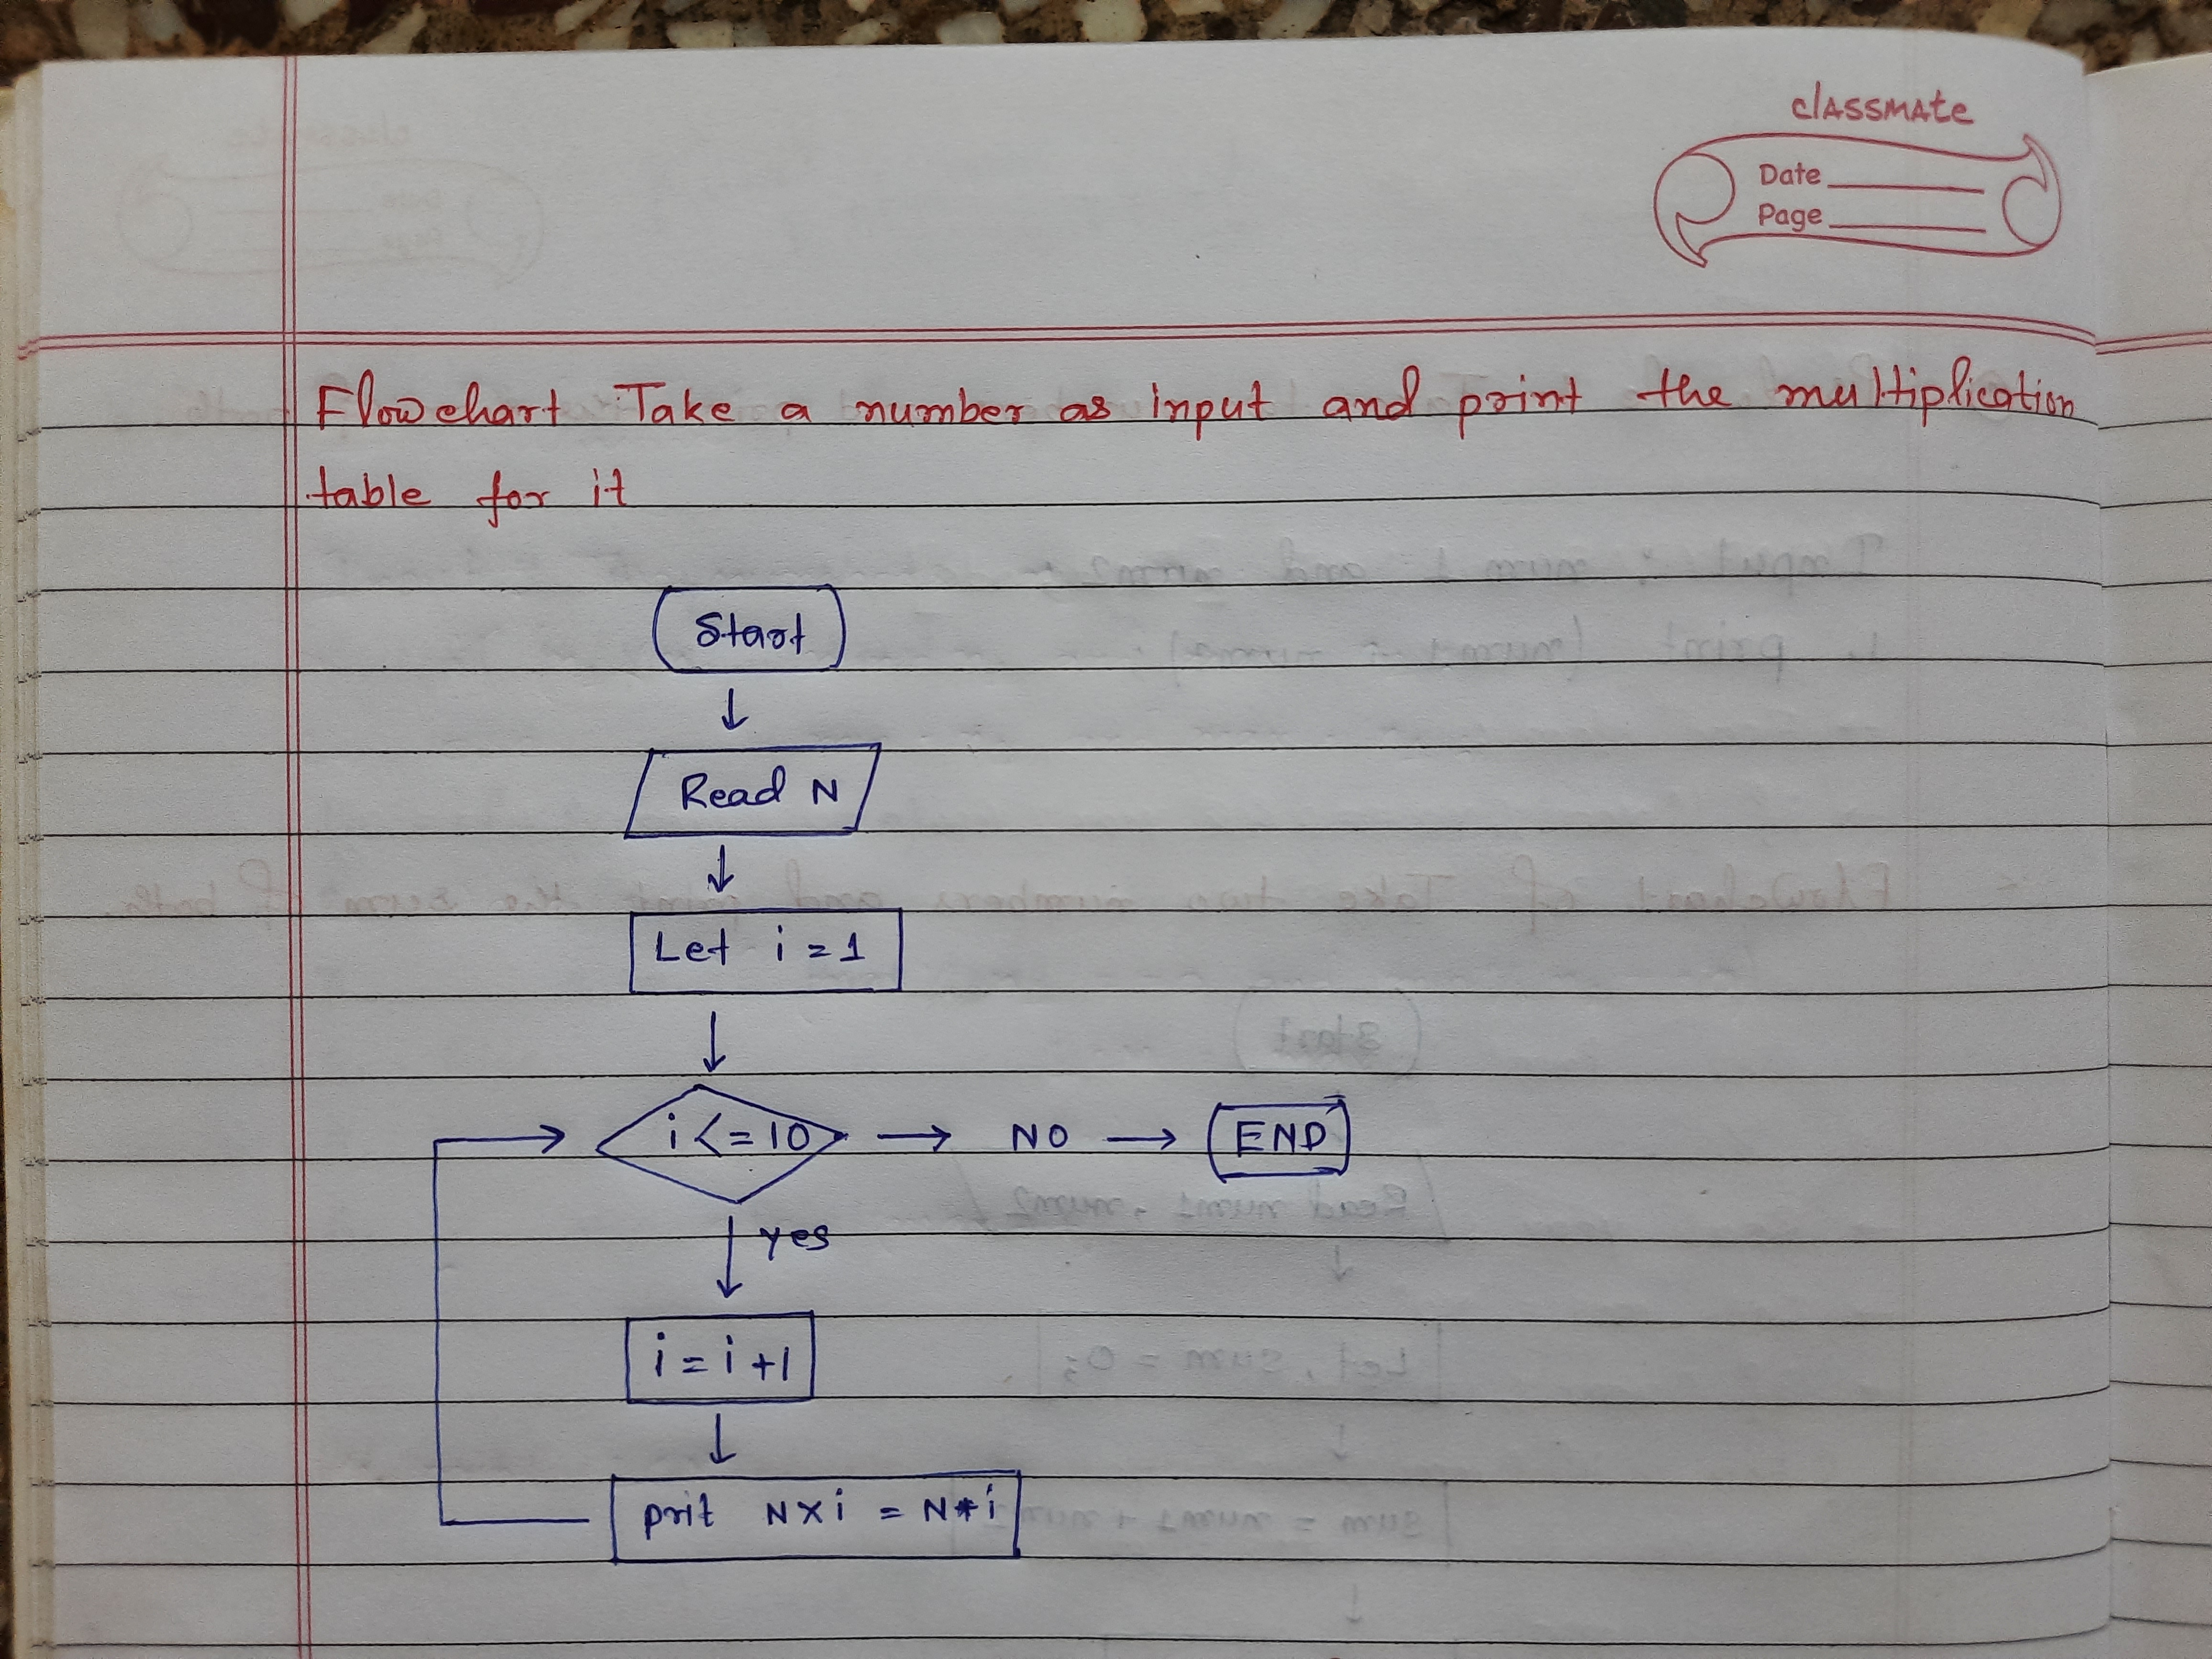 classmate
Date
Page
Flowchart Take a number as input and print the multiplication
table for it
Start
Read N
Let i = 1
i <= 10 → NO → END
yes
i = i + 1
prit N x i = N * i